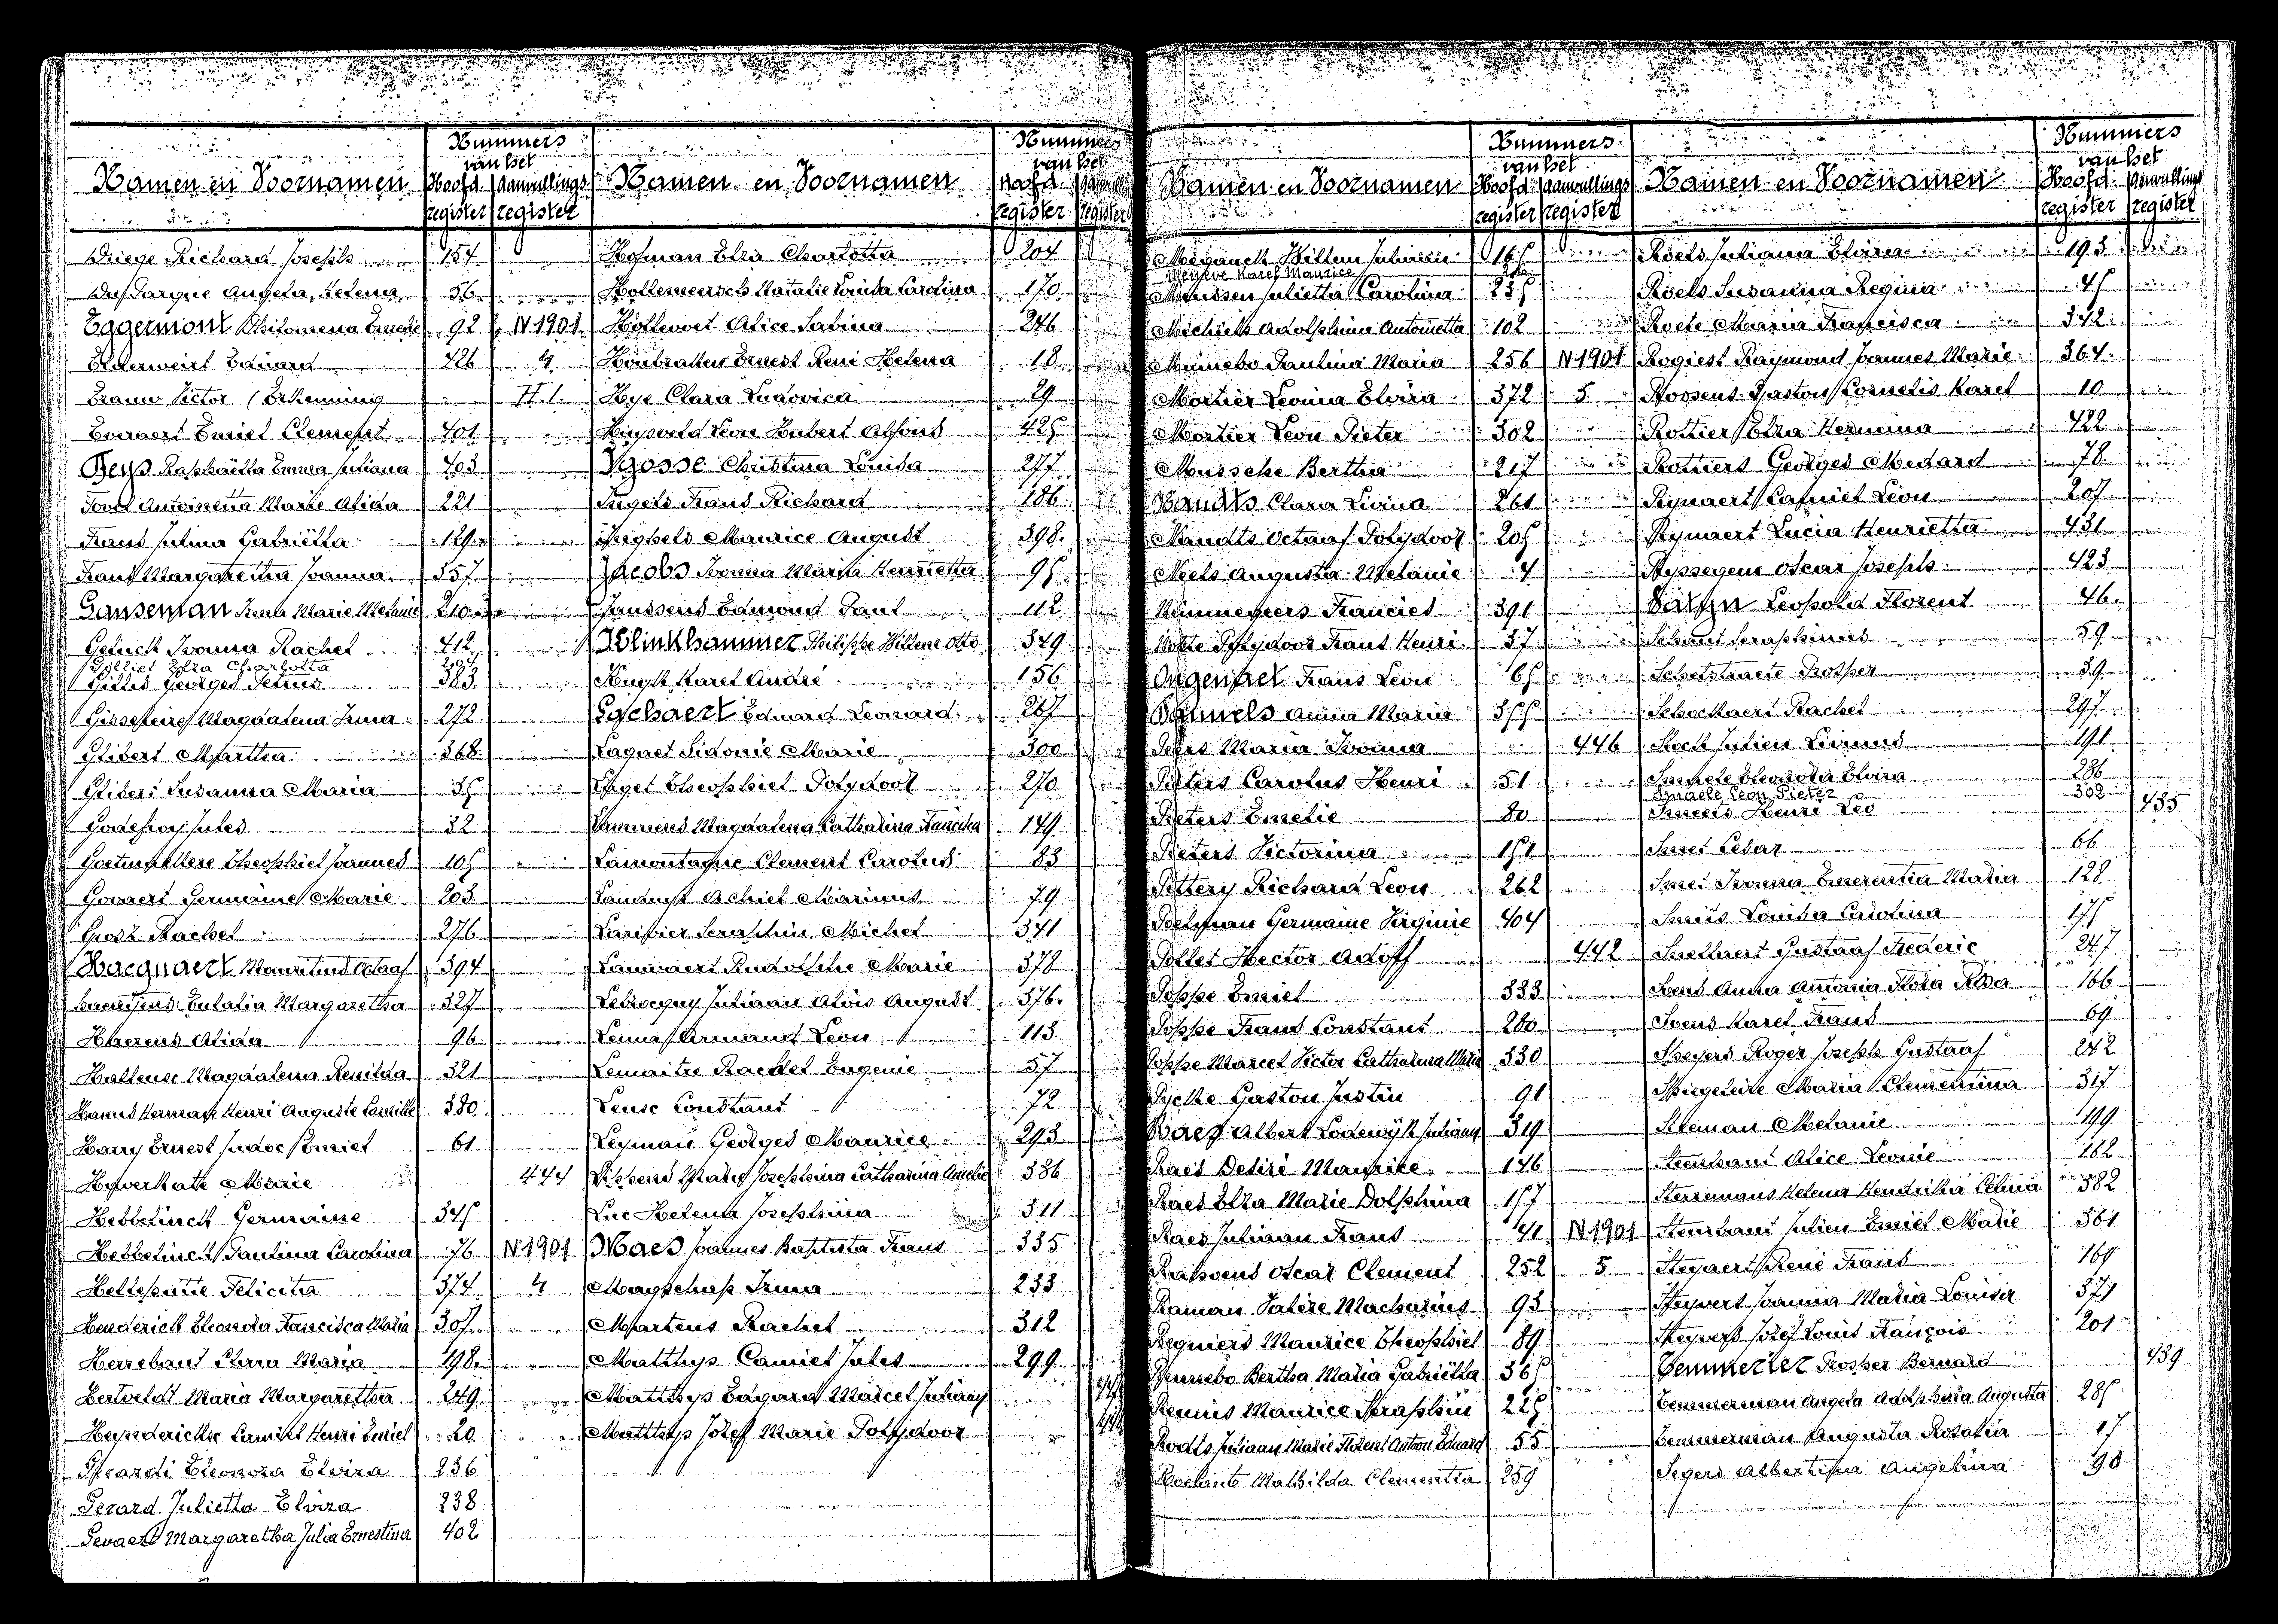 Nummers
van het
Namen en Voornamen Hoofd Aanvullings
register register
Driege Richard Joseph 154
Dufarque Angela Helena 56
Eggermont Philomena Emerie 92 N 1901
Elderweirt Eduard 426 4
Evrauw Victor (Erkenning II.1.
Everaert Emiel Clement 401
Feys Raphaëlla Emma Juliana 403
Foret Antoinetta Marie Alida 221
Frans Julina Gabriëlla 129
Frans Margaretha Joanna 357
Ganseman Irma Marie Melanie 210
Geluck Ivonna Rachel 412
Gilliet Elza Charlotta
Gillis Georges Petrus 383
Gisseleire Magdalena Irma 272
Glibert Martha 368
Glibert Susanna Maria 35
Godefroy Jules 32
Goetinckere Theophiel Joannes 105
Govaert Germaine Marie 203
Grosz Rachel 276
Haegnaert Mauritius Octaaf 394
Haentjens Eulalia Margaretha 327
Haezens Alida 96
Hallense Magdalena Renilda 321
Hamus Herman Henri Auguste Camille 380
Harry Ernest Judoc Emiel 61
Haverkate Marie 444
Hebbelinck Germaine 345
Hebbelinck Paulina Carolina 76 N 1901
Helleputte Felicita 374 4
Henderick Eleonora Francisca Maria 305
Herrebaut Clara Maria 198
Hertveldt Maria Margaretha 249
Heynderickx Camiel Henri Emiel 20
Gerardi Eleonora Elvira 236
Gerard Julietta Elvira 238
Gevaert Margaretha Julia Ernestina 402
Nummers
van het
Namen en Voornamen Hoofd Aanvullings
register register
Hofman Elza Charlotta 204
Hollemersch Natalie Louisa Carolina 170
Hollevoet Alice Sabina 246
Houbraken Ernest René Helena 18
Hye Clara Ludovica 29
Huysveld Leon Hubert Alfons 425
Ygosse Christina Louisa 277
Ingels Frans Richard 186
Inghels Maurice August 398
Jacobs Ivonna Maria Henrietta 95
Janssens Edmond Paul 112
Klinkhammer Philippe Willem Otto 349
Kuyk Karel André 156
Lachaert Eduard Leonard 267
Laquet Sidonie Marie 300
Laget Theophiel Polydoor 270
Lammens Magdalena Catharina Francisca 149
Lamontagne Clement Carolus 83
Achiel Marinus 79
Seraphin Michel 341
Lauwaert Rudolphe Marie 378
Lebrocquy Juliaan Aloïs August 376
Lema Armand Leon 113
Lemaitre Rachel Eugenie 57
Leuse Constant 72
Leyman Georges Maurice 293
Lippens Maria Josephina Catharina Amelie 386
Luc Helena Josephina 311
Maes Joannes Baptista Frans 335
Irma 233
Martens Rachel 312
Matthys Camiel Jules 299
Matthys Edgard Marcel Juliaan
Matthys Jozef Marie Polydoor
Nummers
van het
Namen en Voornamen Hoofd Aanvullings
register register
Meganck Willem Juliaan 165
Meyere Karel Maurice
Meussen Julietta Carolina 235
Michiels Adolphina Antonietta 102
Minnebo Paulina Maria 256 N 1901
Mortier Leonia Elvira 372 5
Mortier Leon Pieter 302
Mussche Bertha 217
Naudts Clara Livina 261
Naudts Octaaf Polydoor 205
Neels Augusta Melanie 4
Nimmegeers Franciest 391
Notte Polydoor Frans Henri 37
Ongenael Frans Leon 65
Pauwels Anna Maria 355
Peers Maria Ivonna 446
Peters Carolus Henri 51
Pieters Emelie 80
Pieters Victorina 151
Pittery Richard Leon 262
Poelman Germaine Virginie 404
Pollet Hector Adolf 442
Poppe Emiel 333
Poppe Frans Constant 280
Poppe Marcel Victor Catharina Maria 330
Pycke Gaston Justin 91
Raes Albert Lodewyk Juliaan 319
Raes Desiré Maurice 146
Raes Elza Marie Dolphina 157
Raes Juliaan Frans 41 N 1901
Rassens Oscar Clement 252 5
Raman Valère Macharius 93
Regniers Maurice Theophiel 89
Rennebo Bertha Maria Gabriëlla 365
Rennis Maurice Seraphin 225
Rodts Juliaan Marie Florent Antoon Eduard 55
Roelants Mathilda Clementia 259
Nummers
van het
Namen en Voornamen Hoofd Aanvullings
register register
Roels Juliana Elvira 193
Roels Susanna Regina 45
Roete Maria Francisca 342
Rogiest Raymond Joannes Marie 364
Roosens Gaston Cornelis Karel 10
Rottier Elza Hermina 422
Rottiers Georges Medard 78
Rynaert Camiel Leon 207
Rynaert Lucia Henrietta 431
Ryssegem Oscar Joseph 423
Leopold Florent 46
Schaut Seraphinus 59
Schelstraete Prosper 39
Schockaert Rachel 297
Julien Livinus 191
Smaele Eleonora Elvira 286
Smaele Leon Pieter 308
Smeets Henri Leo 435
Smet Cesar 66
Smet Ivonna Emerentia Maria 128
Smits Louisa Carolina 175
Snellaert Gustaaf Frederic 247
Soens Anna Antonia Flora Rosa 166
Soens Karel Frans 69
Speyers Roger Joseph Gustaaf 242
Spiegeleire Maria Clementina 317
Staeman Melanie 199
Steenhaut Alice Leonie 162
Sterremans Helena Hendrika Celina 382
Steurbaut Julien Emiel Marie 361
Steyaert René Frans 169
Steyvert Joanna Maria Louisa 371
Steyvers Jozef Louis François 201
Temmerlez Prosper Bernard 439
Temmerman Angela Adolphina Augusta 285
Temmerman Augusta Rosalia 17
Segers Albertina Angelina 90